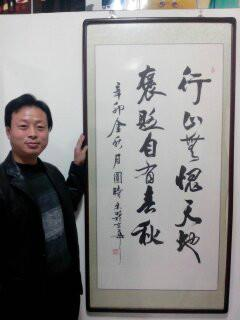 行止无愧天地
褒贬自有春秋
辛卯金秋月圆时